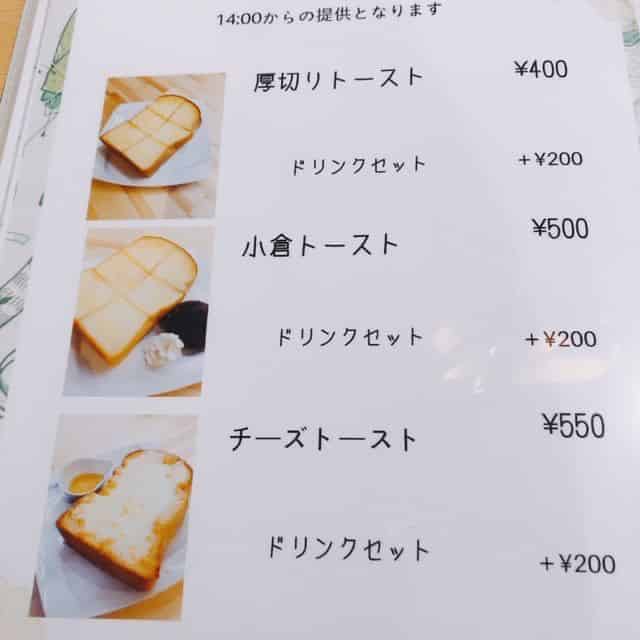 14:00からの提供となります
厚切りトースト ¥400
ドリンクセット +¥200
小倉トースト ¥500
ドリンクセット +¥200
チーズトースト ¥550
ドリンクセット +¥200